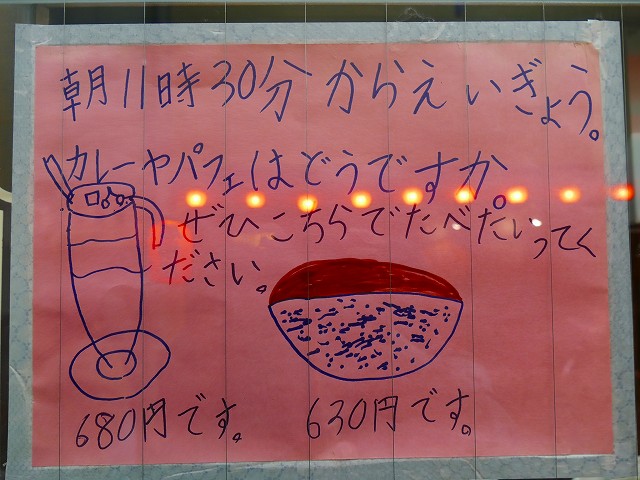 朝11時30分からえいぎょう。
カレーやパフェはどうですか
ぜひこちらでたべたいってく
ださい。
680円です。
630円です。